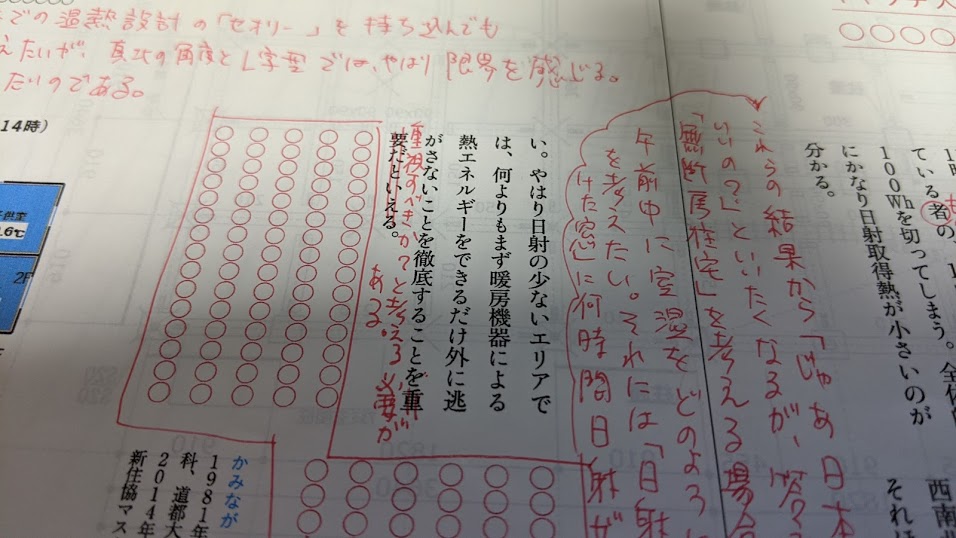 での温熱設計の「セオリー」を持ち込んでも
えたいが、真北の角度とL字型では、やはり限界を感じる。
たいのである。
○○○○
1
ている者の
100Whを切ってしまう。全体
にかなり日射取得熱が小さいのが
分かる。
西南
それ
これらの結果から「じゃあ日本
いいの?」といいたくなるが、
「無断房住宅」を考える場合
午前中に室温をどのように
を考えたい。それには「日射
けた窓」に何時間日射が
い。やはり日射の少ないエリアで
は、何よりもまず暖房機器による
熱エネルギーをできるだけ外に逃
がさないことを徹底することを重
要だといえる。
重視すべきか?と考える必要が
ある。
14時)
子供室
.6℃
2F
かみなが
1981年
科、道都大
2014年
新住協マス